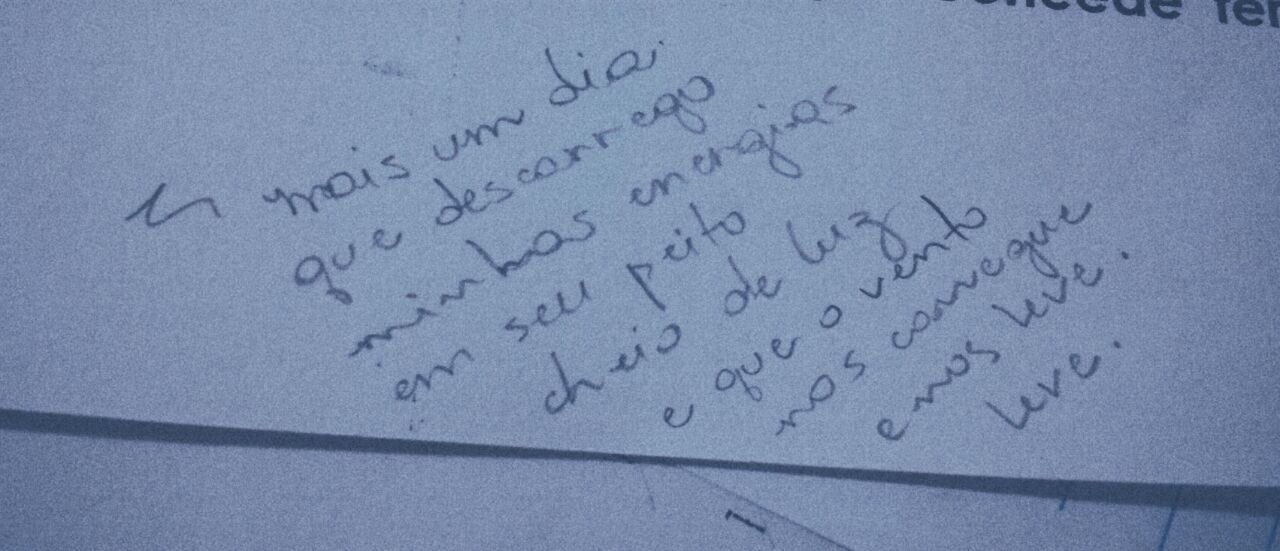 mais um dia.
que descarrego
minhas energias
em seu peito
cheio de luz
e que o vento
nos carregue
e nos leve.
leve.